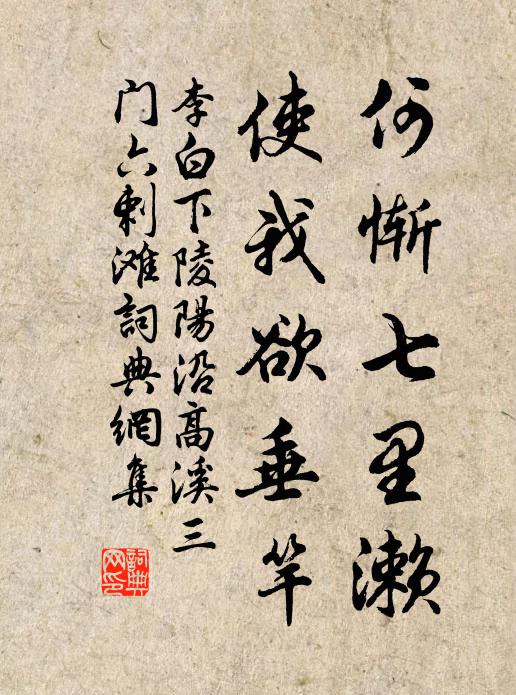 何慚七里瀨
使我欲垂竿
李白下陵陽沿高溪三
门六刺滩詞典網集
詞典网印